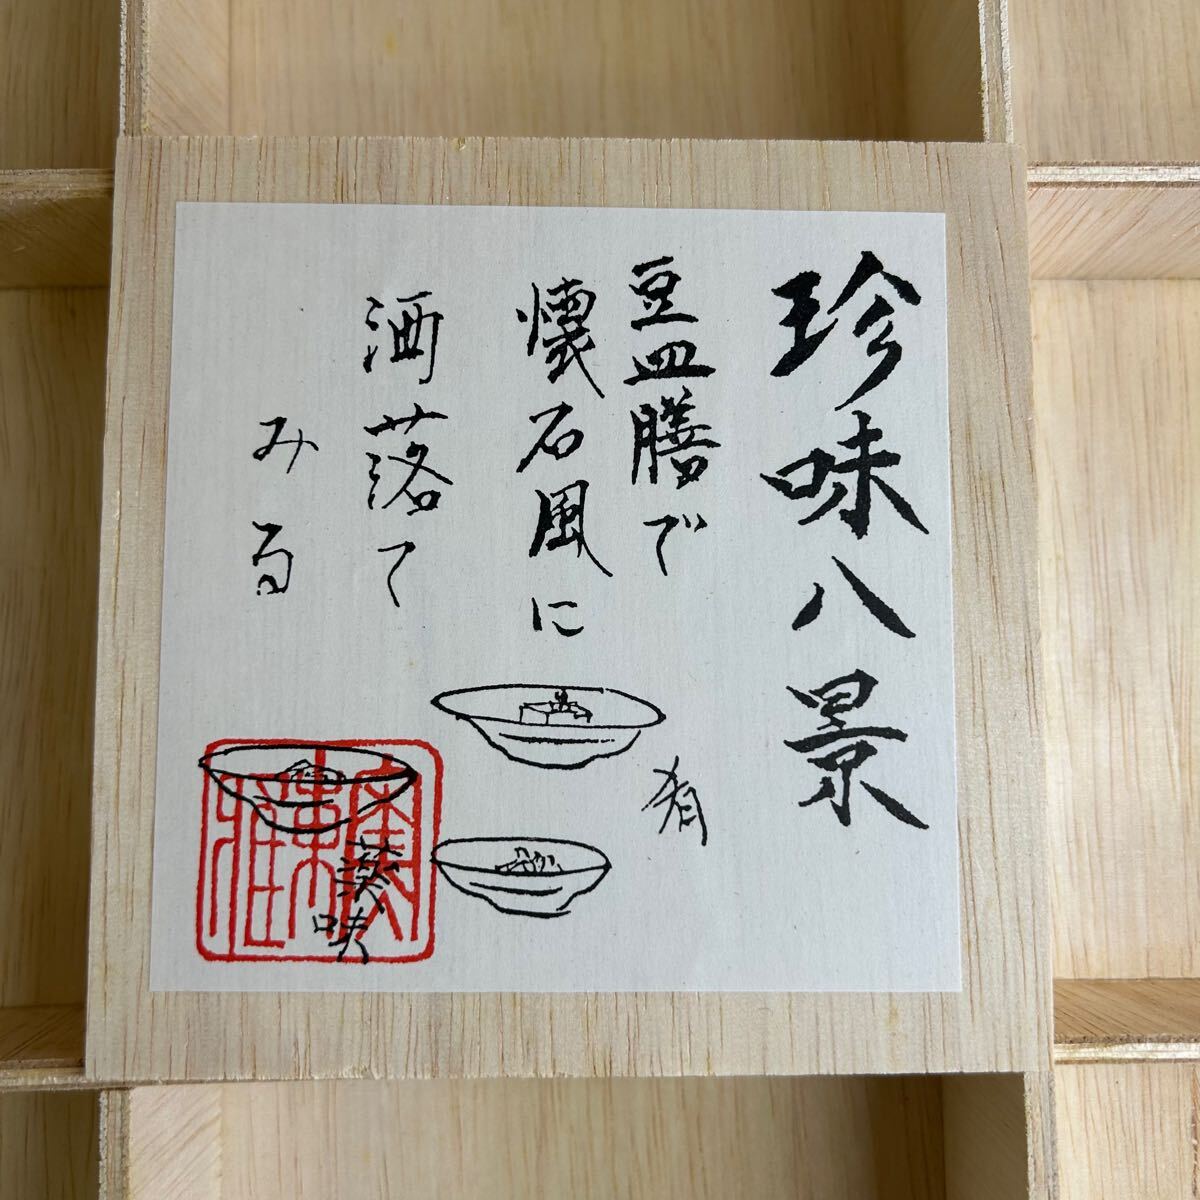 珍味八景
豆皿膳で
懐石風に
洒落て
みる
肴
薬味